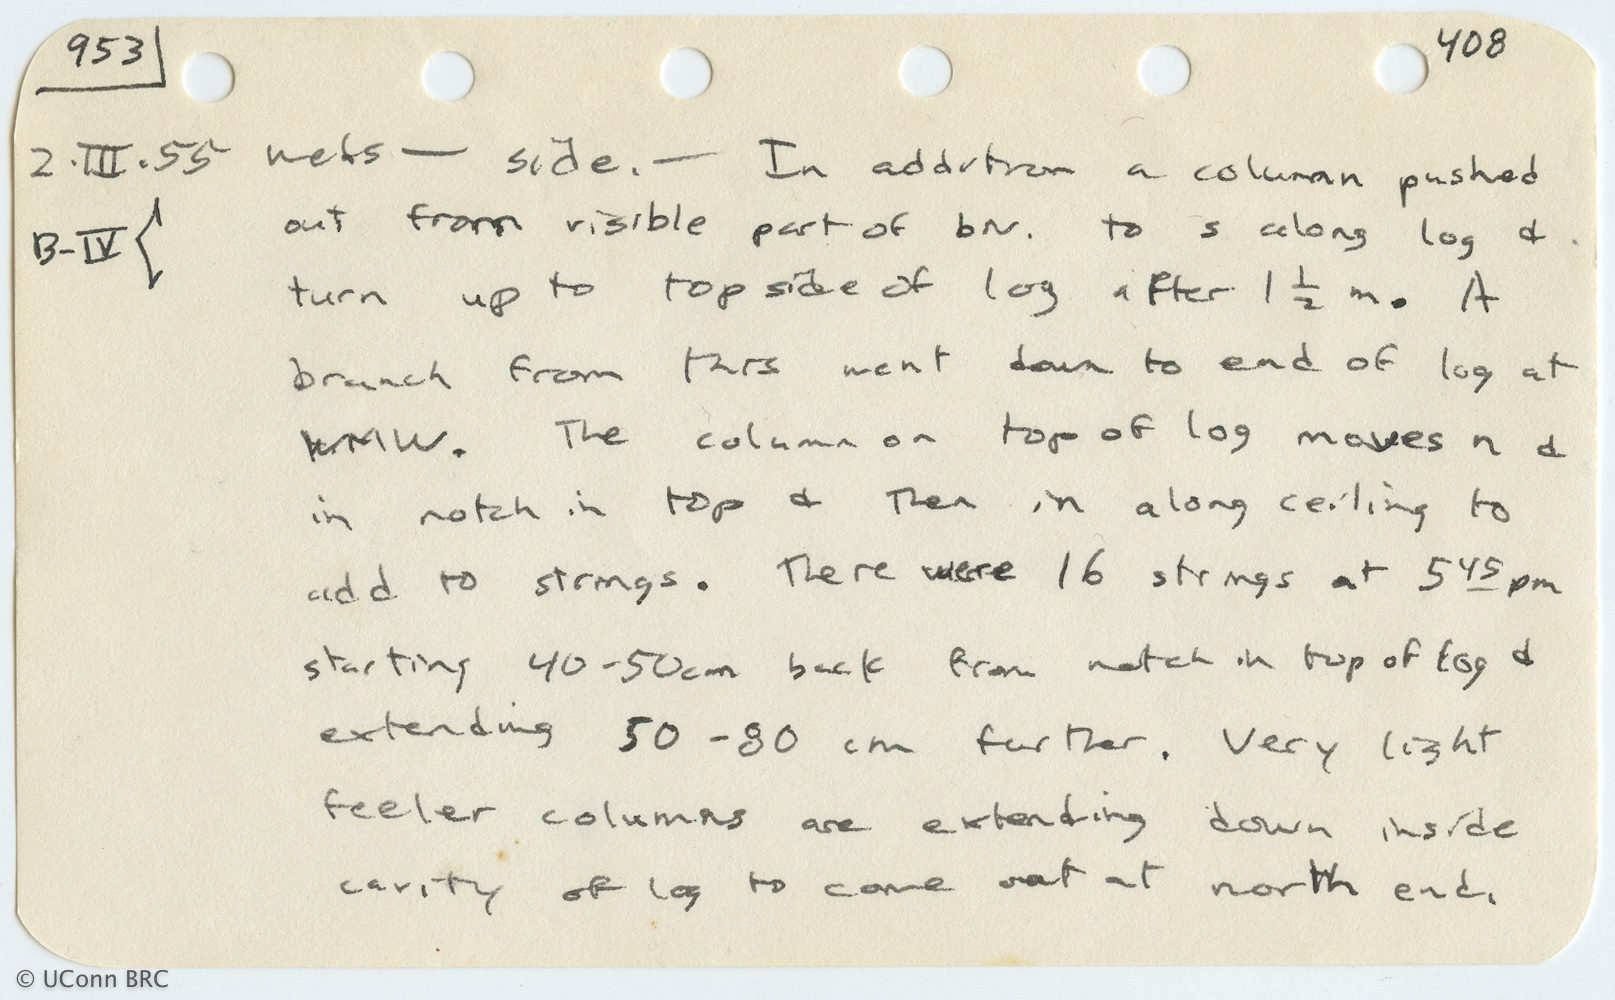 953 408
2.III.55 nets — side. — In addition a column pushed
B-IV { out from visible part of biv. to s along log &
turn up to topside of log after 1 1/2 m. A
branch from this went down to end of log at
The column on top of log moves n &
in notch in top & then in along ceiling to
add to strings. There were 16 strings at 5 45 pm
starting 40-50cm back from notch in top of log &
extending 50-80 cm further. Very light
feeler columns are extending down inside
cavity of log to come out at north end.
© UConn BRC